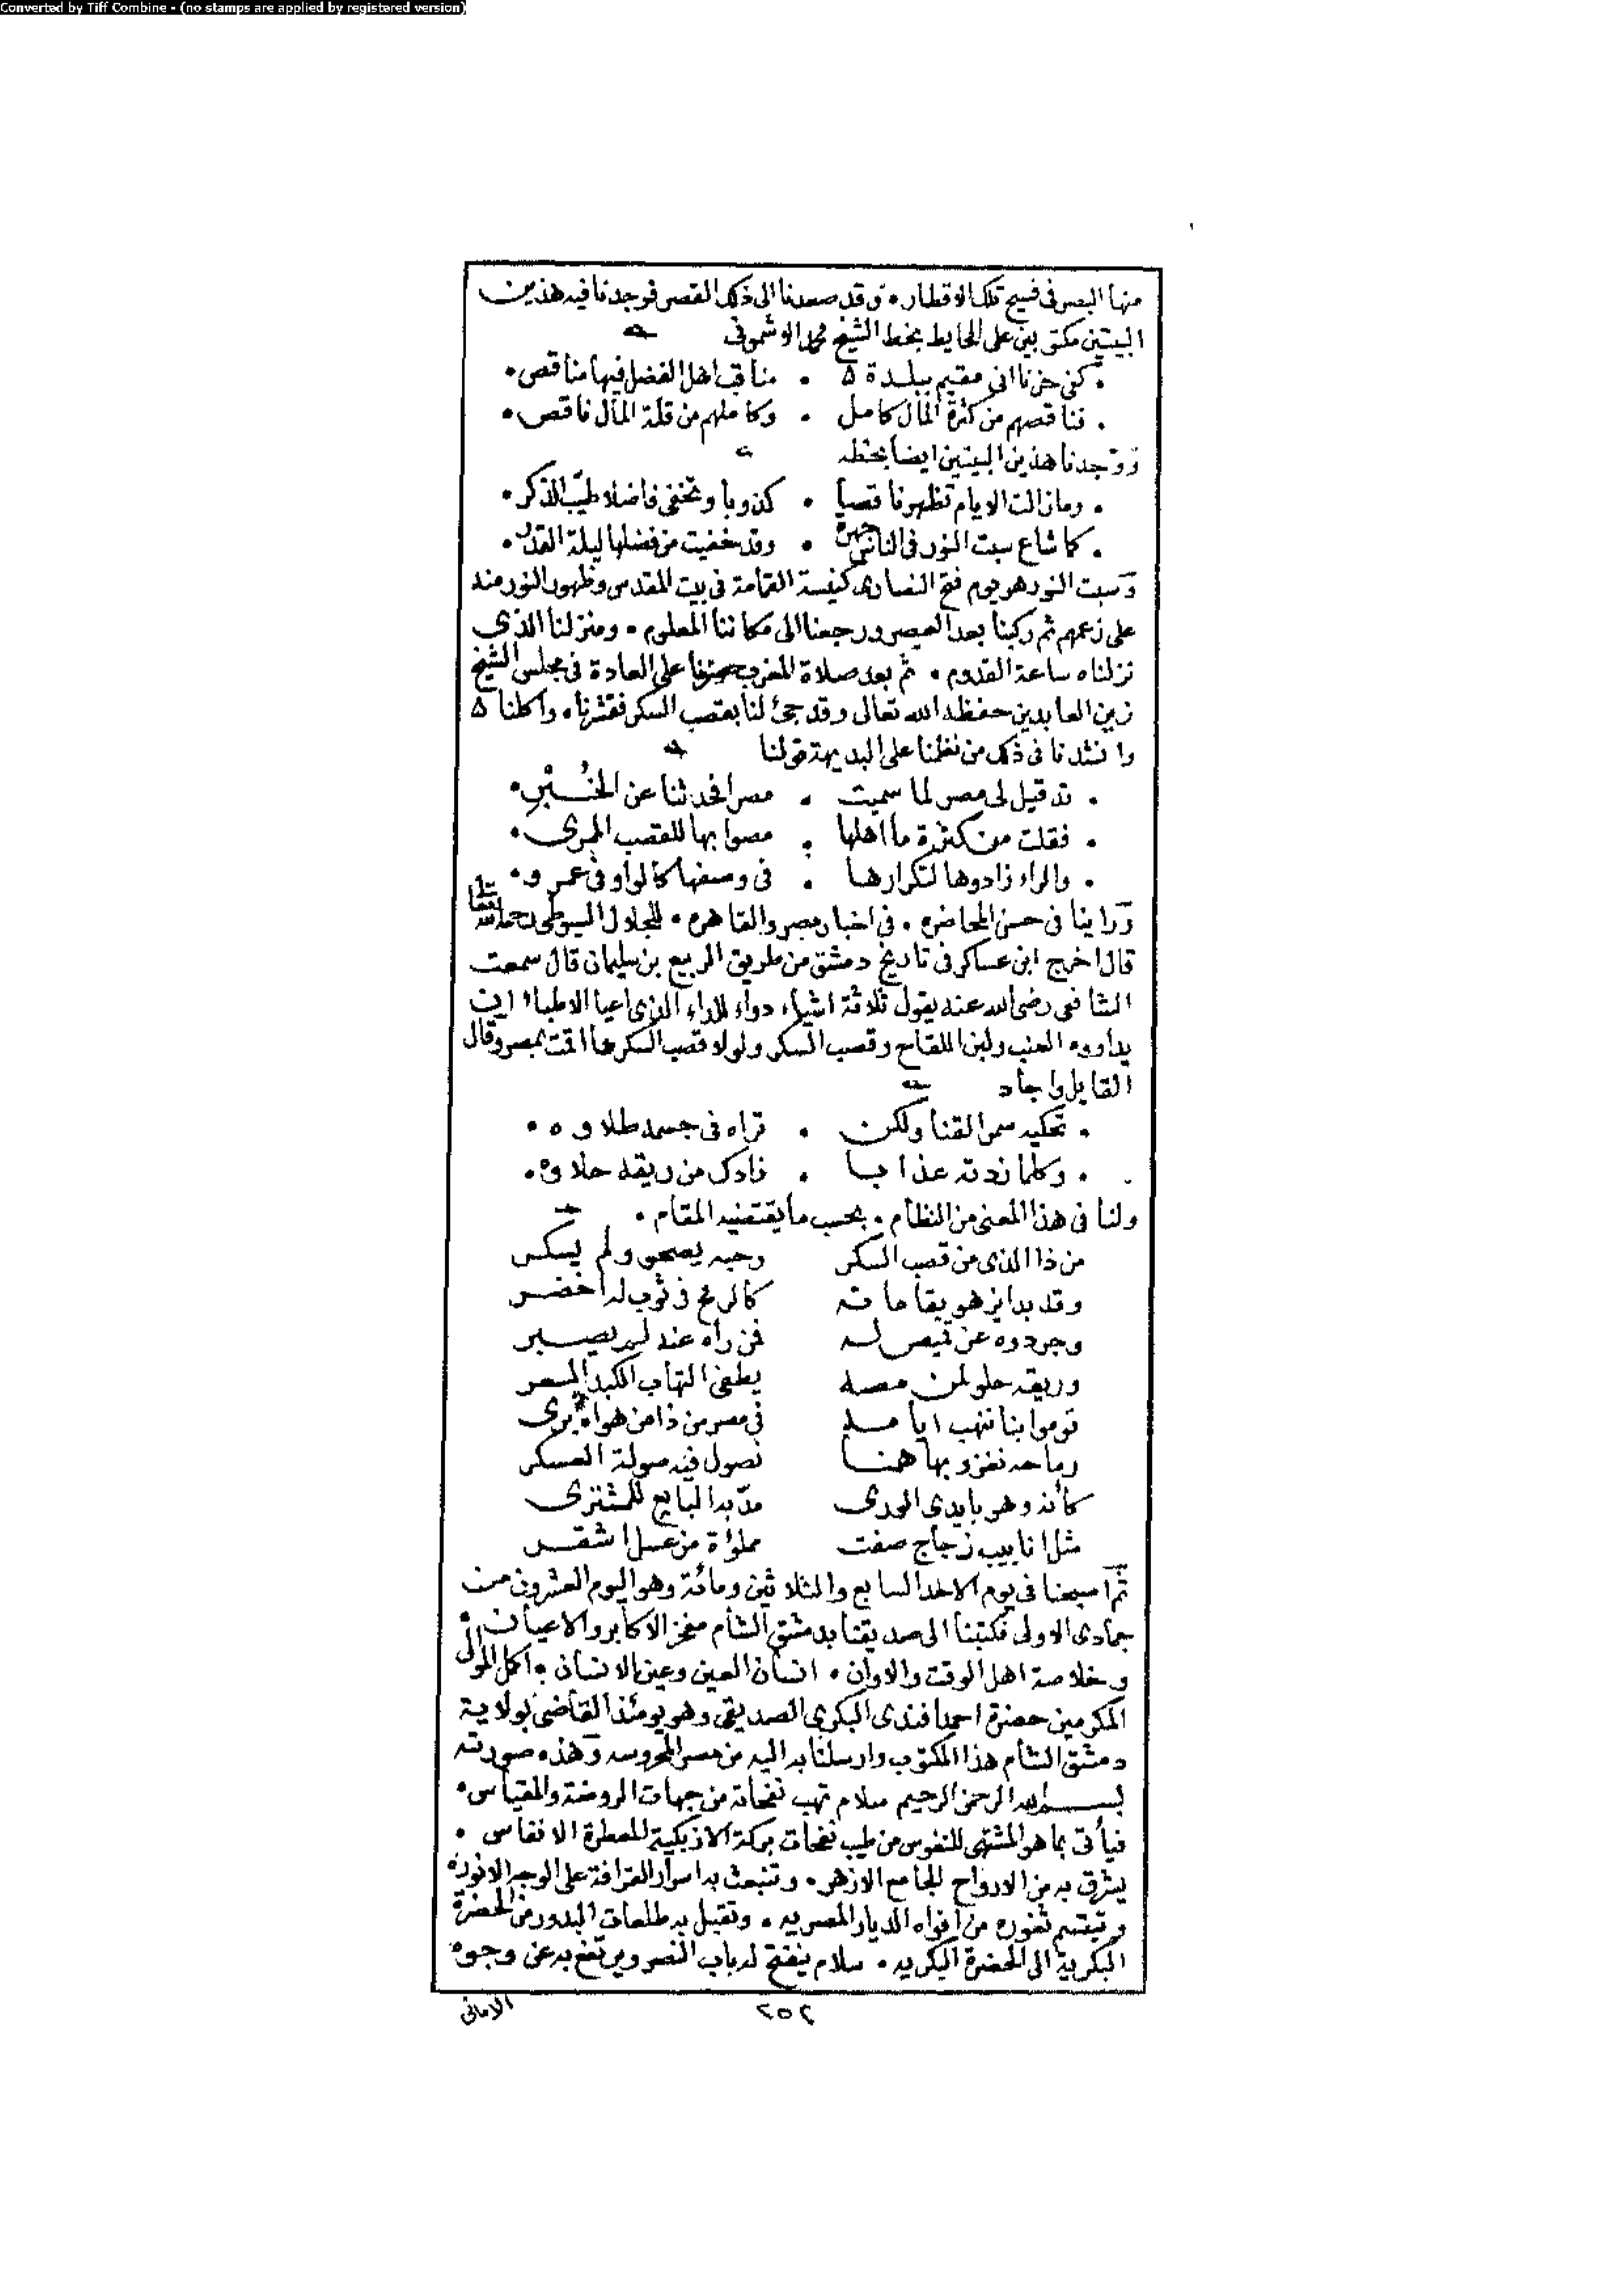 Converted by Tiff Combine - (no stamps are applied by registered version)
منها البصر فى فسيح تلك الاقطار • وقد صعدنا الى ذلك القصر فوجدنا فيه هذين
البيتين مكتوبين على الحايط بخط الشيخ محمد الاشمونى
• كفى حزنا انى مقيم ببلدة • مناقب اهل الفضل فيها مناقص •
• فناقصهم من كثرة المال كامل • وكاملهم من قلة المال ناقص •
ووجدنا هذين البيتين ايضا بخطه
• ومازالت الايام تظهر ناقصا • كذوبا وتخفى فاضلا طيب الذكر •
• كما شاع سبت النور فى الناس جهرة • وقد خفيت من فضلها ليلة القدر •
وسبت النور هو يوم فتح النصارى كنيسة القمامة فى بيت المقدس وظهور النور منه
على زعمهم ثم ركبنا بعد العصر ورجعنا الى مكاننا المعلوم • ومنزلنا الذى
نزلناه ساعة القدوم • ثم بعد صلاة المغرب حضرنا على العادة فى مجلس الشيخ
زين العابدين حفظه الله تعالى وقد جئ لنا بقصب السكر فقشرناه واكلنا
وانشدنا فى ذلك من نظمنا على البديهة قولنا
• قد قيل لى مصر لما سميت • مصرا فحدثنا عن الخُبْرِ •
• فقلت من كثرة ما اهلها • مصوا بها للقصب المرى •
• والراء زادوها لتكرارها • فى وصفها كالواو فى عمرو •
ورأينا فى حسن المحاضره • فى اخبار مصر والقاهره • للجلال السيوطى رحمه الله تعالى
قال اخرج ابن عساكر فى تاريخ دمشق من طريق الربيع بن سليمان قال سمعت
الشافعى رضى الله عنه يقول ثلاثة اشياء دواء للداء الذى اعيا الاطباء ان
يداووه العنب ولبن اللقاح وقصب السكر ولولا قصب السكر ما اقمت بمصر وقال
القايل واجاد
• تحكيه سمر القنا ولكن • تراه فى جسمه طلاوه •
• وكلما زدته عذابا • زادك من ريقه حلاوه •
ولنا فى هذا المعنى من النظام • بحسب ما يقتضيه المقام •
من ذا الذى من قصب السكر وحبه يصحو ولم يسكر
وقد بدا يزهو بقاماته كالرمح فى ثوب له اخضر
وجردوه عن قميص له فمن رآه عنه لم يصبر
وريقه حلو لمن مصه يطفى التهاب الكبد المسعر
قوموا بنا ننهب ايامه فى مصر من ذا من هواه برى
رماحه نغزو بها همنا نصول فيه صولة العسكر
كأنه وهو بايدى الورى مد يد البايع للمشترى
مثل انابيب زجاج صفت مملؤة من عسل اشقر
ثم اصبحنا فى يوم الاحد السابع والثلاثين ومائة وهو اليوم العشرون من
جمادى الاولى فكتبنا الى صديقنا بدمشق الشأم مفخر الاكابر والاعيان •
وخلاصة اهل الوقت والاوان • انسان العين وعين الانسان • اكمل الموالى
المكرمين حضرة احمد افندى البكرى الصديقى وهو يومئذ القاضى بولاية
دمشق الشأم هذا المكتوب وارسلنا به اليه من مصر المحروسه وهذه صورته
بسم الله الرحمن الرحيم سلام تهب نفحاته من جهات الروضة والمقياس •
فيأتى بما هو المشتهى للنفوس من طيب نفحات بركة الازبكية المعطرة الانفاس •
يشرق به من الارواح الجامع الازهر • وتنبعث به اسرار القرافة على الوجه الانور •
وتبتسم ثغوره من افواه الديار المصريه • وتقبل به طلعات البدور من الحضرة
البكرية الى الحضرة البكريه • سلام ينفتح له باب النصر ويرتفع به عن وجوه
الامانى
٢٥٢